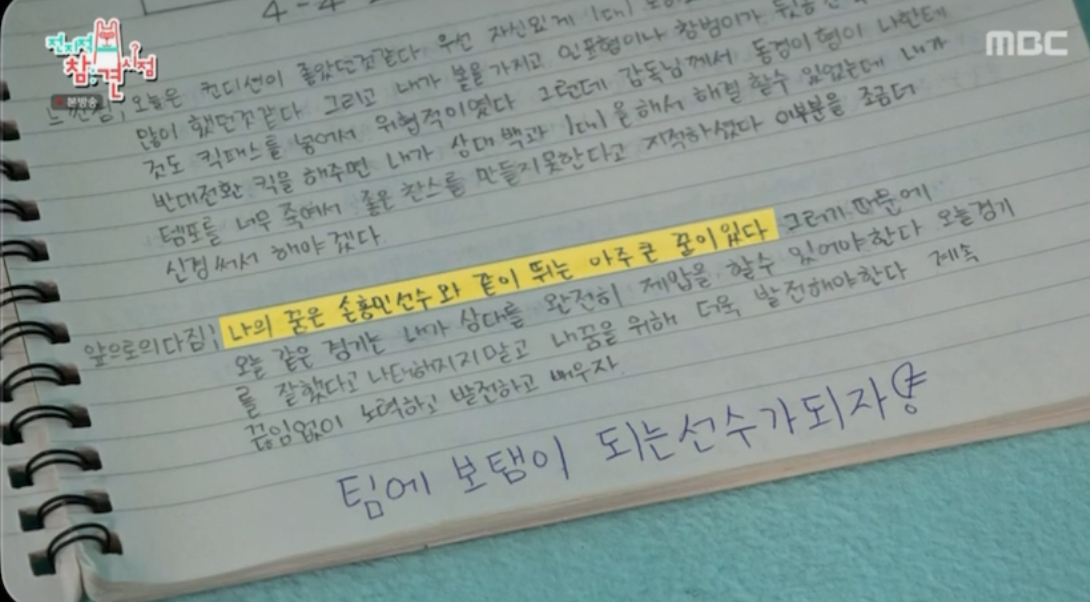 4-4-2
전지적
참견시점
본방송
MBC
느낀점; 오늘은 컨디션이 좋았던것같다 우선 자신있게 1대1
많이 했던것같다 그리고 내가 볼을 가지고 인프런이나 창범이가
것도 킥패스를 넣어서 위협적이였다 그런데 감독님께서 동경이형이 나한테
반대전환 킥을 해주면 내가 상대 백과 1대1을해서 해결 할수 있었는데 내가
템포를 너무 죽여서 좋은찬스를 만들지못한다고 지적하셨다 이부분을 조금더
신경써서 해야 겠다.
앞으로의다짐; 나의 꿈은 손흥민선수와 같이 뛰는 아주 큰 꿈이있다 그러기 때문에
오늘 같은 경기는 내가 상대를 완전히 제압을 할수 있어야한다 오늘경기
를 잘했다고 나태해지지말고 내꿈을 위해 더욱 발전해야한다 계속
끊임없이 노력하고 발전하고 배우자.
팀에 보탬이 되는선수가되자